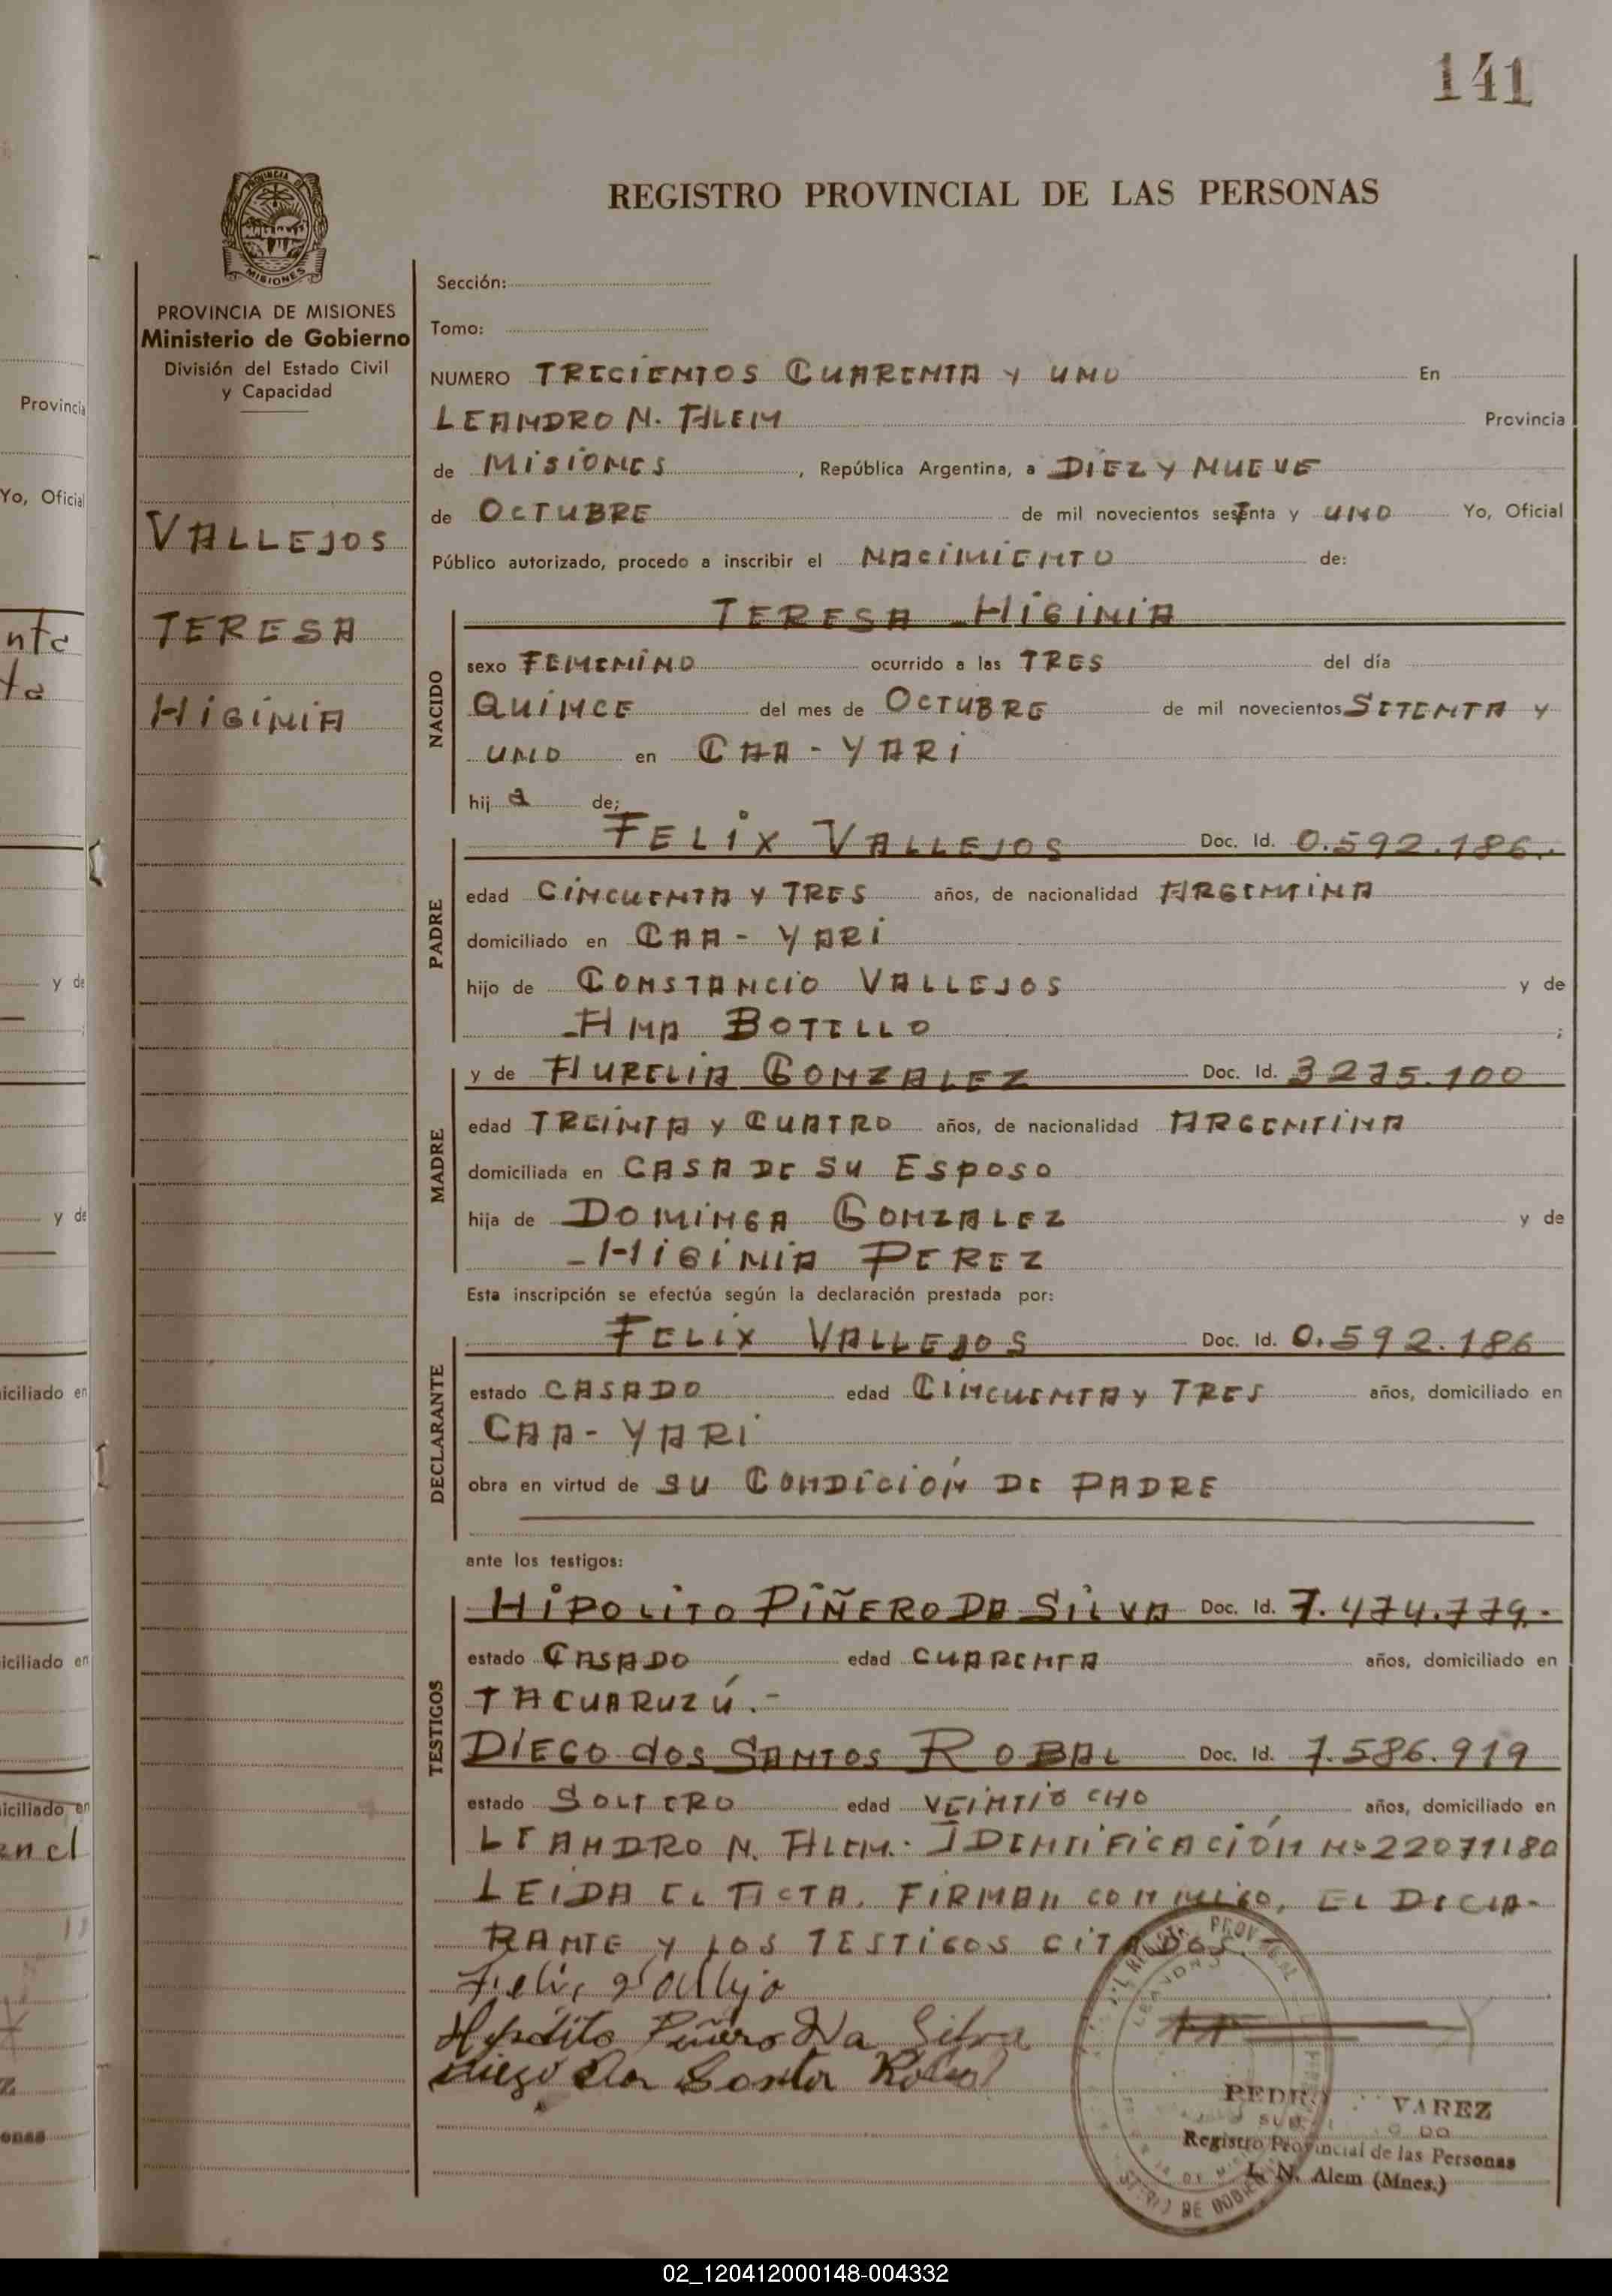 141
REGISTRO PROVINCIAL DE LAS PERSONAS
PROVINCIA DE
MISIONES
PROVINCIA DE MISIONES
Ministerio de Gobierno
División del Estado Civil
y Capacidad
VALLEJOS
TERESA
HIGINIA
Sección:
Tomo:
NUMERO TRECIENTOS CUARENTA Y UNO En
LEANDRO N. ALEM Provincia
de MISIONES, República Argentina, a DIEZ Y NUEVE
de OCTUBRE de mil novecientos setenta y UNO Yo, Oficial
Público autorizado, procedo a inscribir el NACIMIENTO de:
NACIDO
TERESA HIGINIA
sexo FEMENINO ocurrido a las TRES del día
QUINCE del mes de OCTUBRE de mil novecientos SETENTA Y
UNO en CAA-YARI
hij a de;
PADRE
FELIX VALLEJOS Doc. Id. 0.592.186.
edad CINCUENTA Y TRES años, de nacionalidad ARGENTINA
domiciliado en CAA-YARI
hijo de CONSTANCIO VALLEJOS y de
ANA BOTELLO ;
MADRE
y de AURELIA GONZALEZ Doc. Id. 3275.100
edad TREINTA Y CUATRO años, de nacionalidad ARGENTINA
domiciliada en CASA DE SU ESPOSO
hija de DOMINGA GONZALEZ y de
HIGINIA PEREZ
Esta inscripción se efectúa según la declaración prestada por:
DECLARANTE
FELIX VALLEJOS Doc. Id. 0.592.186
estado CASADO edad CINCUENTA Y TRES años, domiciliado en
CAA-YARI
obra en virtud de SU CONDICIÓN DE PADRE
ante los testigos:
TESTIGOS
HIPOLITO PIÑERO DA SILVA Doc. Id. 7.474.779.-
estado CASADO edad CUARENTA años, domiciliado en
TACUARUZÚ.-
DIEGO dos SANTOS ROBAL Doc. Id. 7.586.919
estado SOLTERO edad VEINTIOCHO años, domiciliado en
LEANDRO N. ALEM. IDENTIFICACIÓN Nº 22071180
LEIDA EL ACTA, FIRMAN CONMIGO, EL DECLA-
RANTE Y LOS TESTIGOS CITADOS.
Hipólito Piñero Da Silva
PEDRO VAREZ
Registro Provincial de las Personas
L. N. Alem (Mnes.)
Provincia
Yo, Oficial
y de
y de
iciliado en
iciliado en
iciliado en
02_120412000148-004332